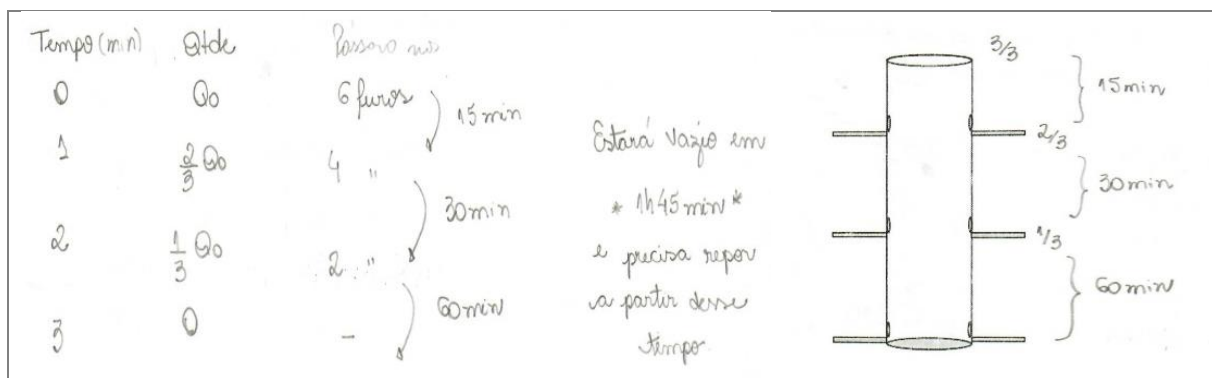 Tempo (min) Qtde Pássaro nos
0 Qo 6 furos
15 min
1 2/3 Qo 4 "
30 min
2 1/3 Qo 2 "
60 min
3 0 -
Estará vazio em
* 1h45min *
e precisa repor
a partir desse
tempo.
3/3
15 min
2/3
30 min
1/3
60 min